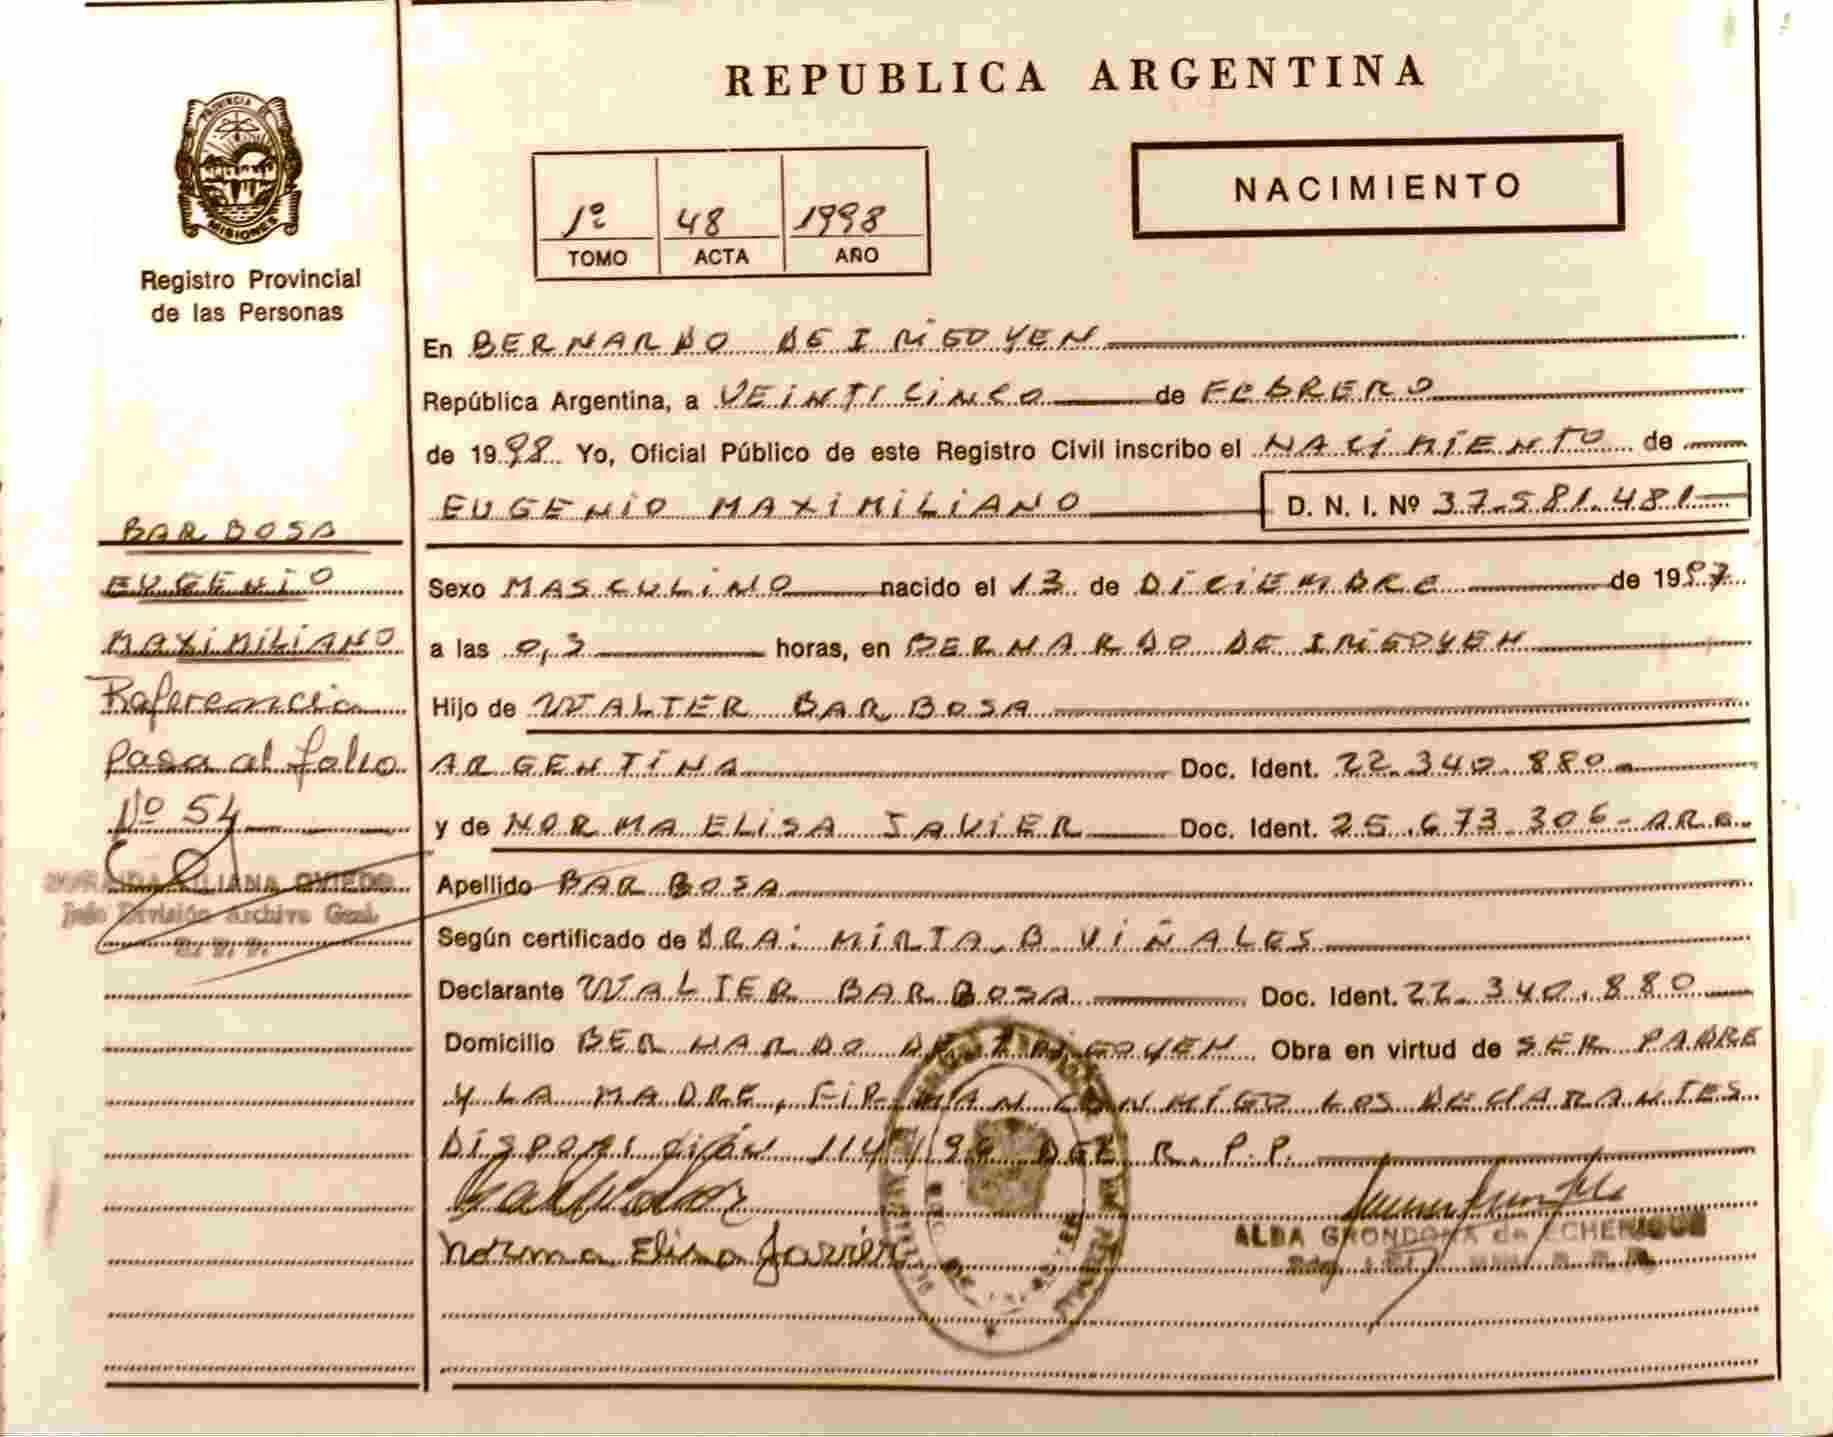 REPUBLICA ARGENTINA
PROVINCIA
MISIONES
Registro Provincial
de las Personas
1º 48 1998
TOMO ACTA AÑO
NACIMIENTO
En BERNARDO DE IRIGOYEN
República Argentina, a VEINTICINCO de FEBRERO
de 1998 Yo, Oficial Público de este Registro Civil inscribo el NACIMIENTO de
EUGENIO MAXIMILIANO D. N. I. Nº 37.581.481
Sexo MASCULINO nacido el 13 de DICIEMBRE de 1997
a las 0,3 horas, en BERNARDO DE IRIGOYEN
Hijo de WALTER BARBOSA
ARGENTINA Doc. Ident. 22.340.880.
y de NORMA ELISA JAVIER Doc. Ident. 25.673.306-ARG.
Apellido BARBOSA
Según certificado de DRA: MIRTA. B VIÑALES
Declarante WALTER BARBOSA Doc. Ident. 22.340.880
Domicilio BERNARDO DE IRIGOYEN Obra en virtud de SER PADRE
Y LA MADRE, FIRMAN CONMIGO LOS DECLARANTES
DISPOSICIÓN 114/96 DEL R.P.P.
Norma Elisa Javier
ALBA GRONDONA de ECHENIQUE
BARBOSA
EUGENIO
MAXIMILIANO
Referencia
Pasa al folio
Nº 54
LILIANA OVIEDO
Jefe División Archivo Gral.
R. P. P.